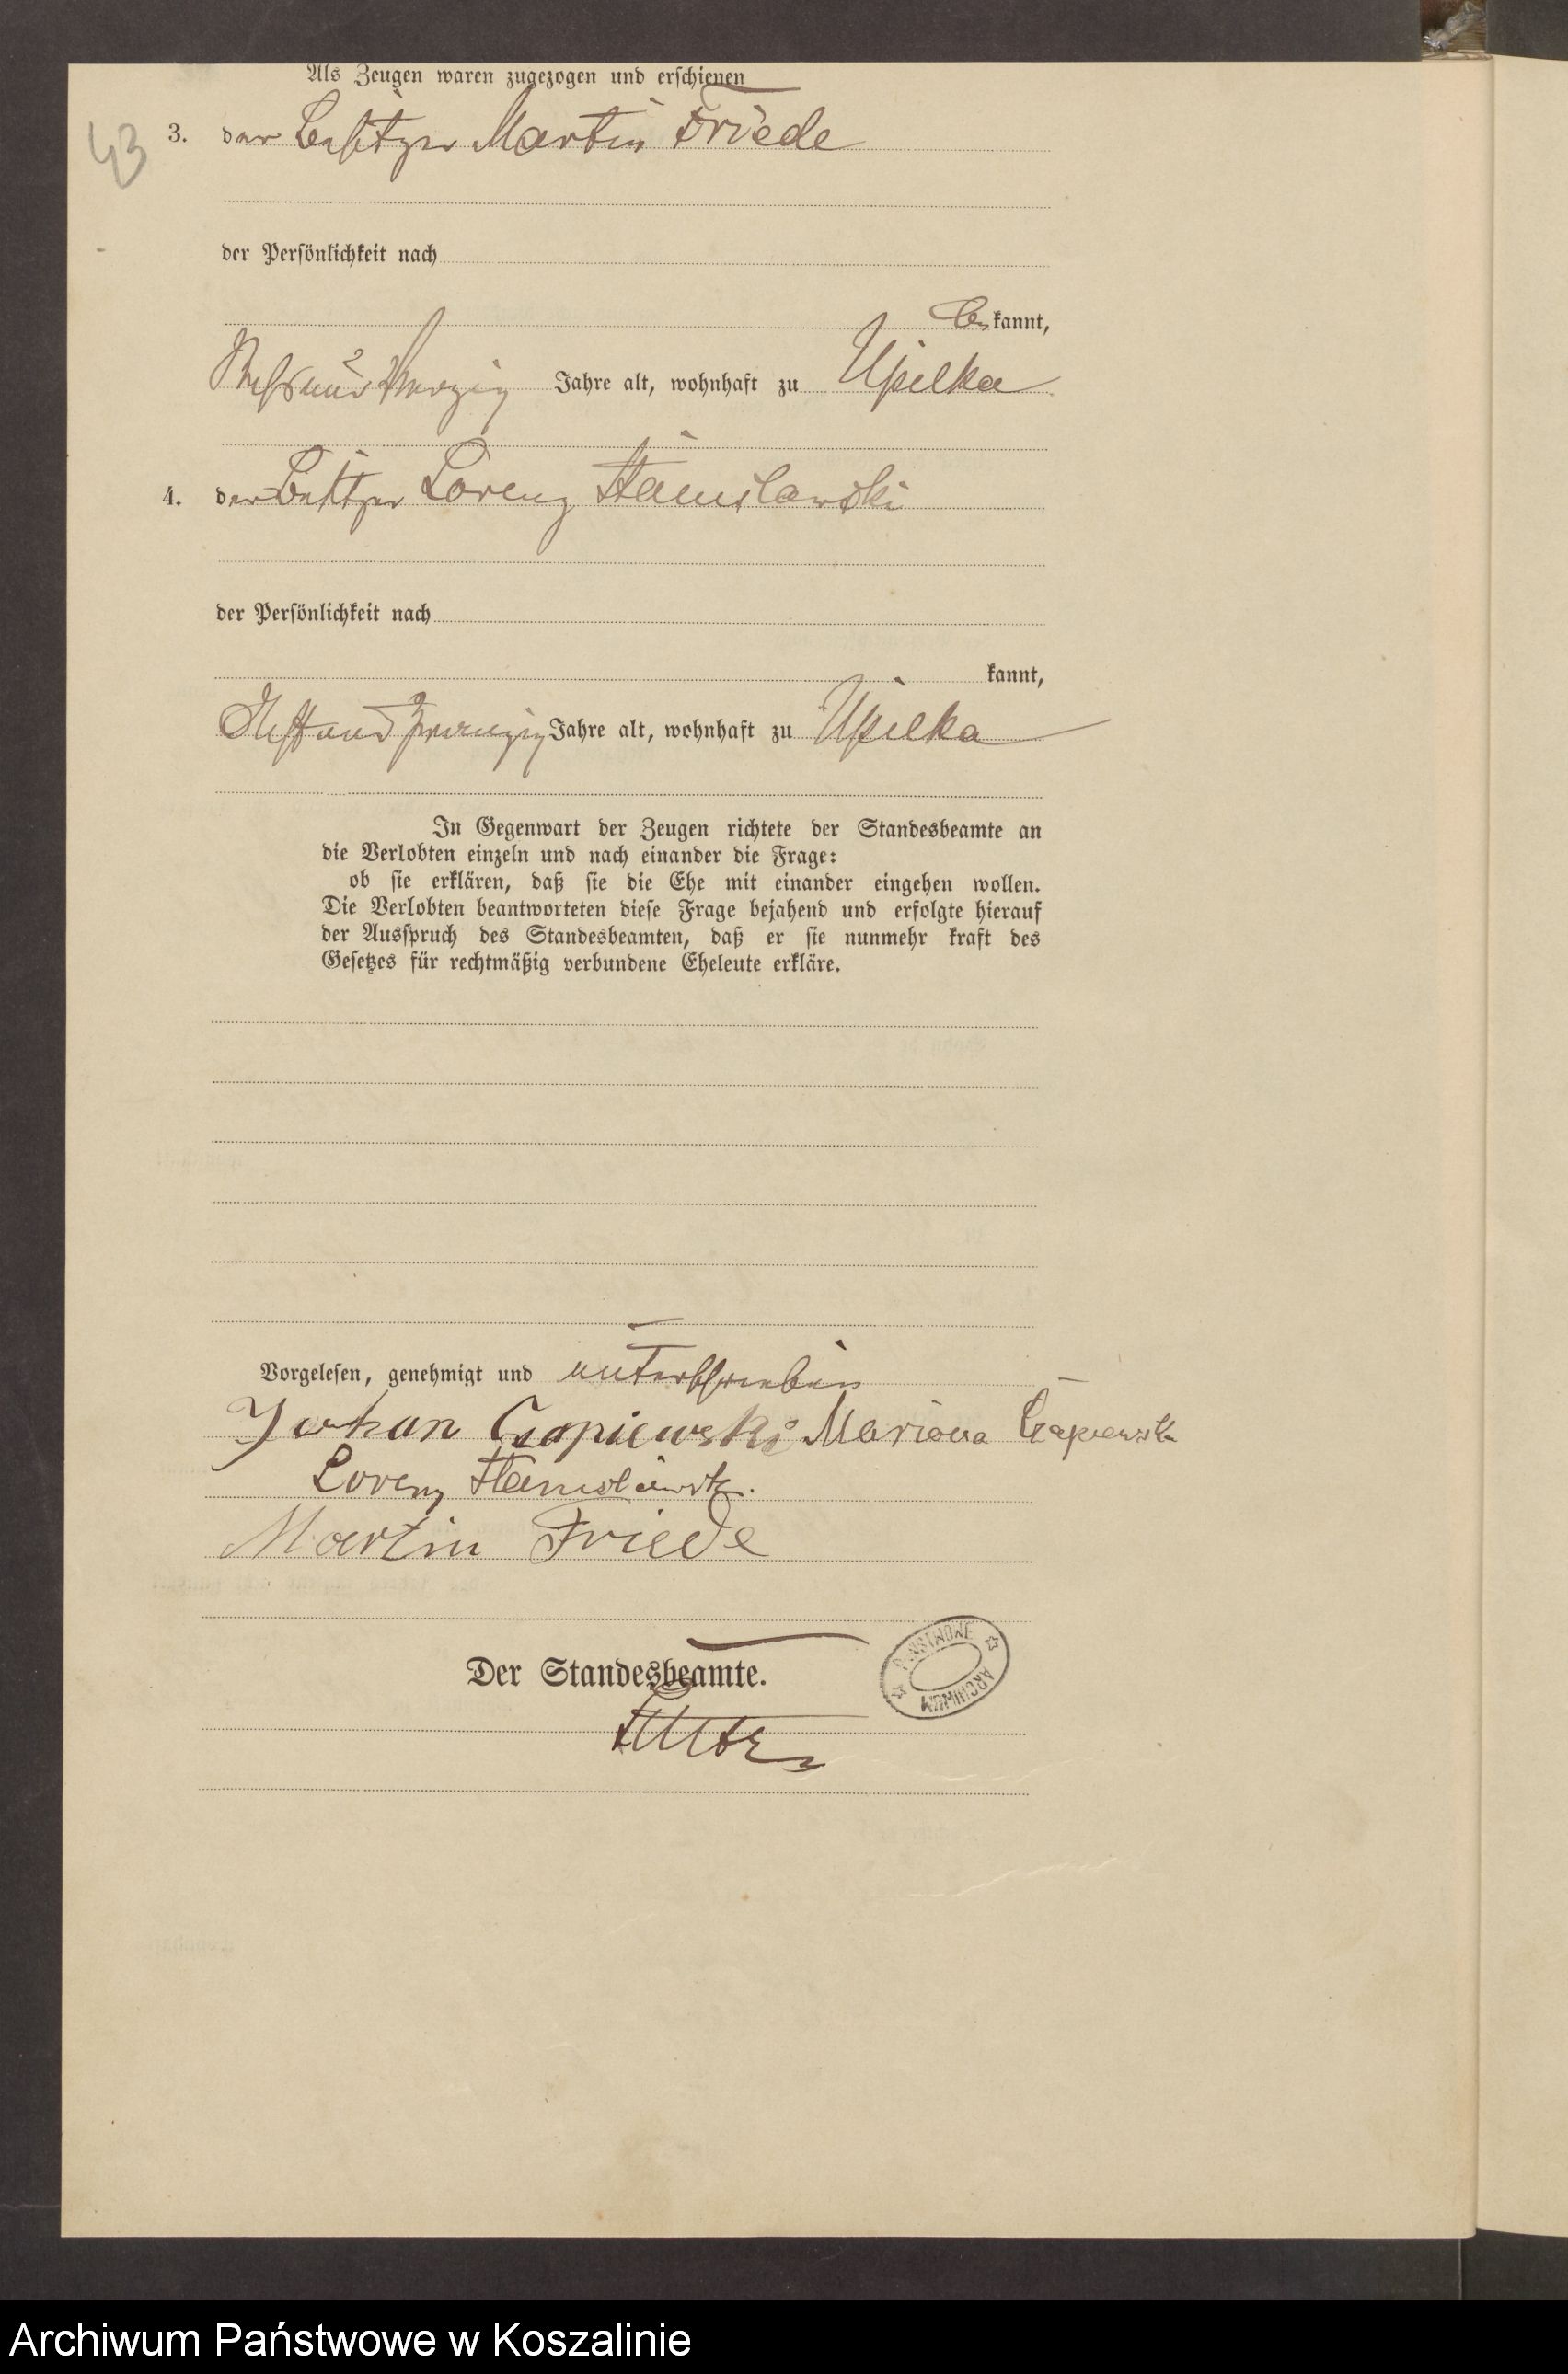 Als Zeugen waren zugezogen und erschienen
43
3. der Besitzer Martin Friede
der Persönlichkeit nach
be kannt,
Jahre alt, wohnhaft zu Upilka
4. der Besitzer Lorenz Stanislawski
der Persönlichkeit nach
kannt,
und zwanzig Jahre alt, wohnhaft zu Upilka
In Gegenwart der Zeugen richtete der Standesbeamte an
die Verlobten einzeln und nach einander die Frage:
ob sie erklären, daß sie die Ehe mit einander eingehen wollen.
Die Verlobten beantworteten diese Frage bejahend und erfolgte hierauf
der Ausspruch des Standesbeamten, daß er sie nunmehr kraft des
Gesetzes für rechtmäßig verbundene Eheleute erkläre.
Vorgelesen, genehmigt und unterschrieben
Johan Czapiewski Mariana Czapiewska
Lorenz Stanislawski.
Martin Friede
Der Standesbeamte.
PAŃSTWOWE
ARCHIWUM
Archiwum Państwowe w Koszalinie